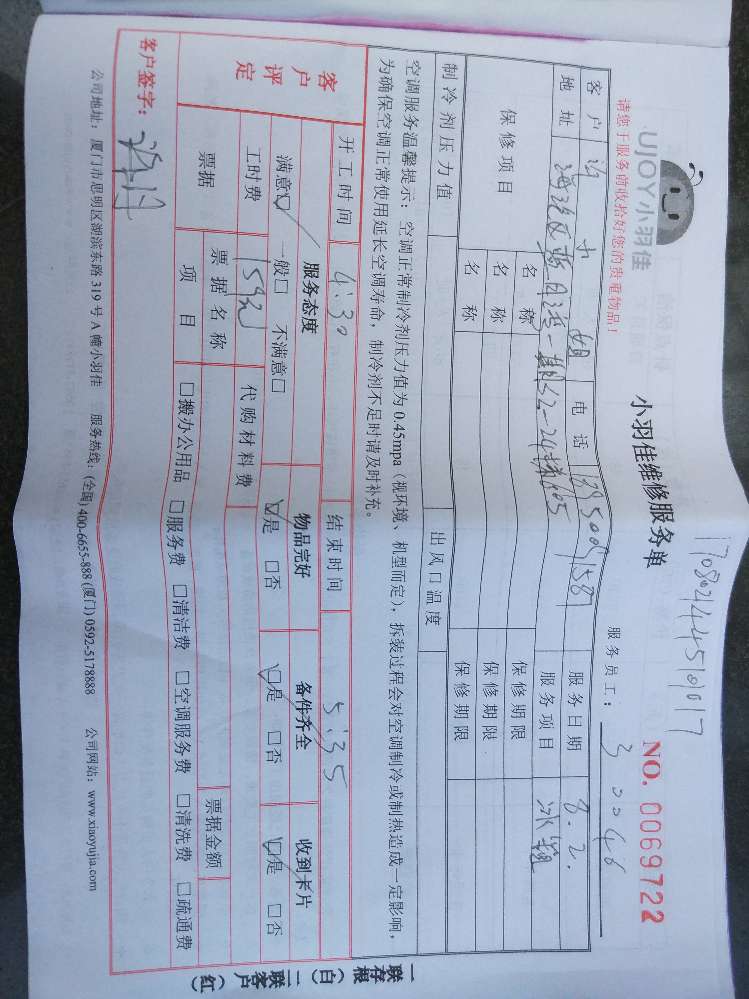 1708024451017
UJOY小羽佳
小羽佳维修服务单
NO. 0069722
请您于服务前收拾好您的贵重物品！
服务员工： 30046
客户 许小姐 电话 服务日期 8.2.
地址 海沧区 日湾一期 605 服务项目 冰箱
保修项目 名称 保修期限
名称 保修期限
名称 保修期限
制冷剂压力值 出风口温度
空调服务温馨提示：空调正常制冷剂压力值为 0.45mpa（视环境、机型而定），拆装过程会对空调制冷或制热造成一定影响，
为确保空调正常使用延长空调寿命，制冷剂不足时请及时补充。
开工时间 4:30 结束时间 5:35
客户评定 服务态度 物品完好 备件齐全 收到卡片
满意☑ 一般□ 不满意□ ☑是 □否 ☑是 □否 ☑是 □否
工时费 159元 代购材料费
票据 票据名称 票据金额
项目 □搬办公用品 □服务费 □清洁费 □空调服务费 □清洗费 □疏通费
客户签字：
公司地址：厦门市思明区湖滨东路 319 号 A 幢小羽佳 服务热线：(全国) 400-6655-888 (厦门) 0592-5178888 公司网站：www.xiaoyujia.com
一联存根（白）二联客户（红）